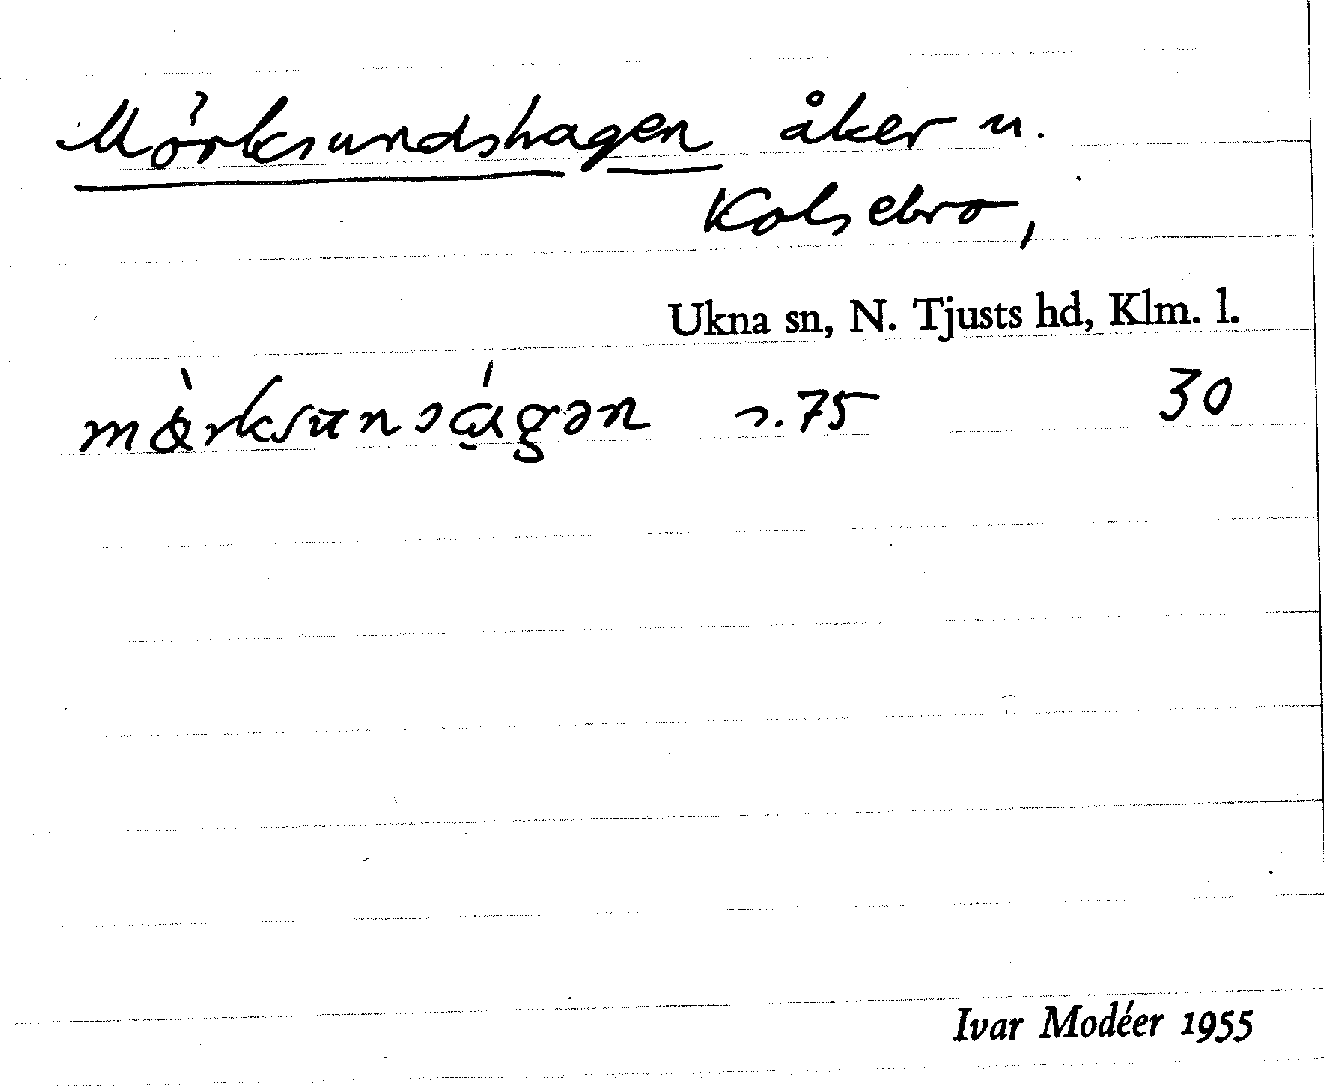 Mörksundshagen åker u.
Kolsebro,
Ukna sn, N. Tjusts hd, Klm. l.
s. 75 30
Ivar Modéer 1955